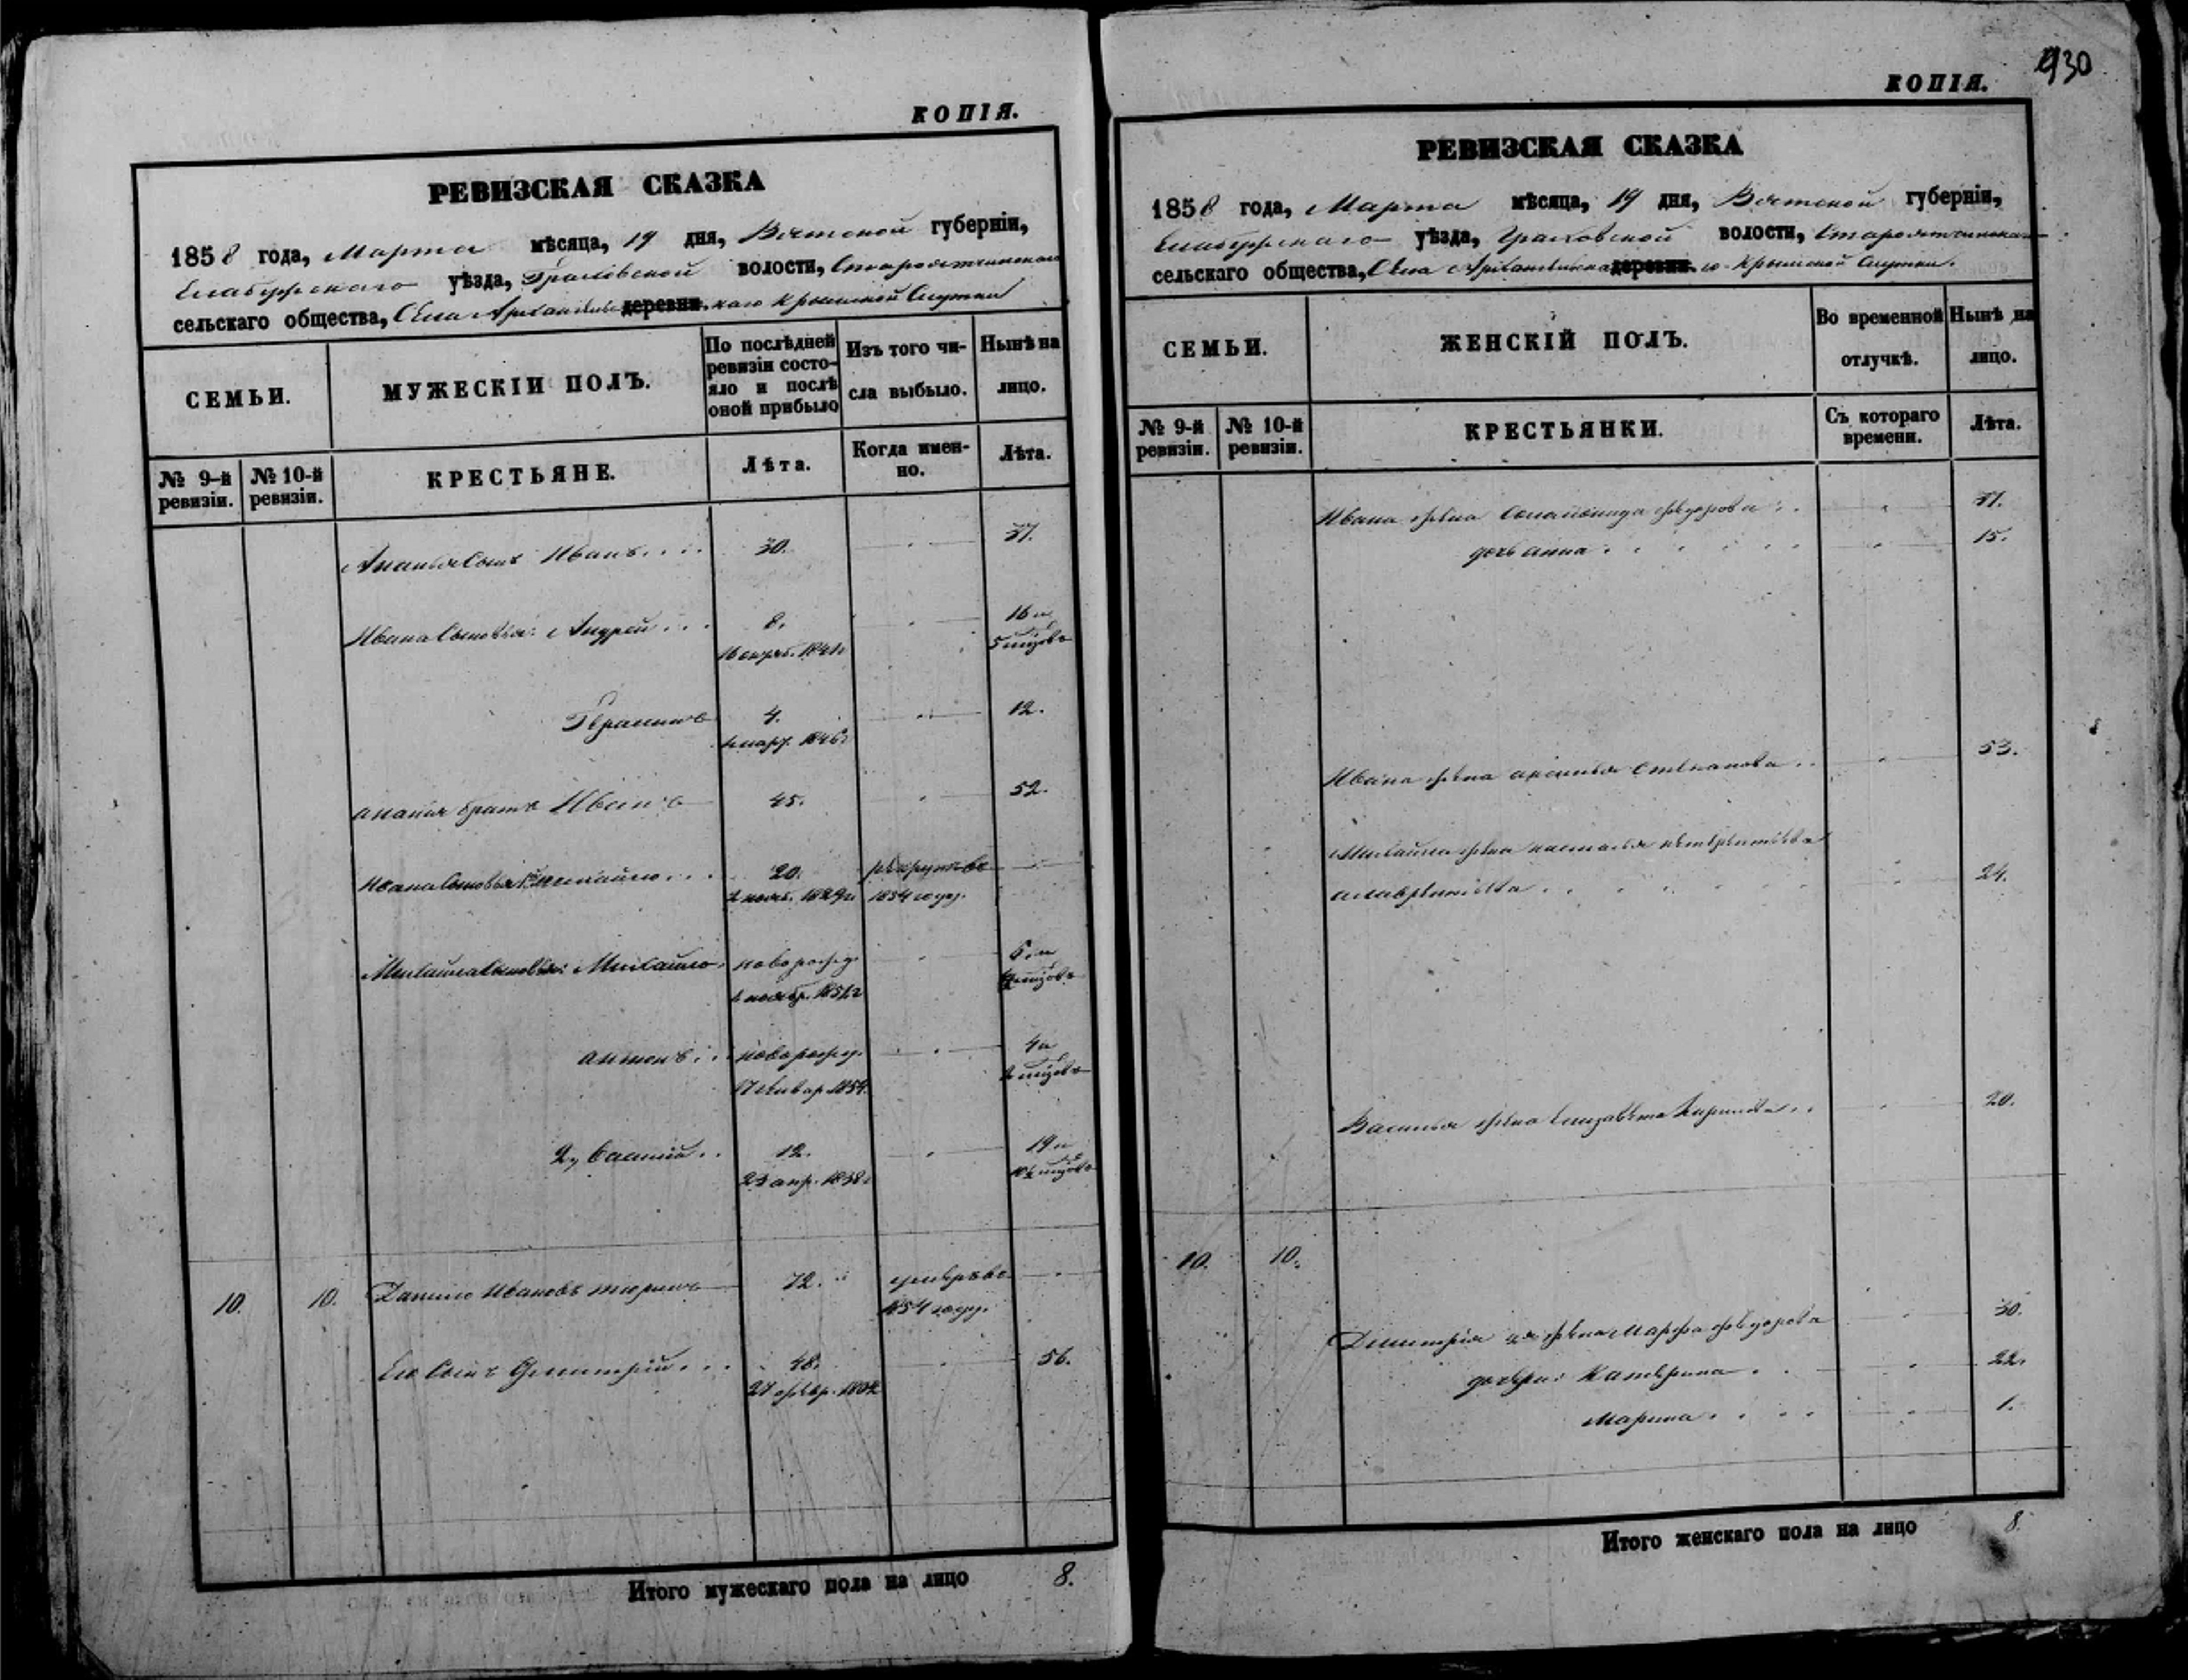 КОПІЯ.
РЕВИЗСКАЯ СКАЗКА
1858 года, Марта мѣсяца, 19 дня, Вятской губерніи,
Елабужскаго уѣзда, Граховской волости,
сельскаго общества, Села деревни. Крымской Слутки
СЕМЬИ.
МУЖЕСКІЙ ПОЛЪ.
По послѣдней ревизіи состояло и послѣ оной прибыло
Изъ того числа выбыло.
Нынѣ на лицо.
№ 9-й ревизіи.
№ 10-й ревизіи.
КРЕСТЬЯНЕ.
Лѣта.
Когда именно.
Лѣта.
Ананья сынъ Иванъ. 30. 37.
Ивана сыновья: Андрей 8. 16 и
5 мцовъ
4. 12.
1846
Ананья братъ Иванъ 45. 52.
Ивана сыновья 1й Михайло 20. рекрутъ въ
1829 1854 году.
Михайла сыновья: Михайло новорожд. 6 и
мцовъ
Антонъ новорожд. 4 и
17 январ. 1854. 2 мцовъ
2й Василій 12. 19 и
23 апр. 1838 10½ мцовъ
10. 10. Данило Ивановъ 72. умеръ въ
1854 году.
Его сынъ Дмитрій 48. 56.
27 февр. 1802
Итого мужескаго пола на лицо 8.
930
КОПІЯ.
РЕВИЗСКАЯ СКАЗКА
1858 года, Марта мѣсяца, 19 дня, Вятской губерніи,
Елабужскаго уѣзда, Граховской волости,
сельскаго общества, Села деревни. Крымской Слутки.
СЕМЬИ.
ЖЕНСКІЙ ПОЛЪ.
Во временной отлучкѣ.
Нынѣ на лицо.
№ 9-й ревизіи.
№ 10-й ревизіи.
КРЕСТЬЯНКИ.
Съ котораго времени.
Лѣта.
Ивана жена Соломонида Федорова 37.
дочь Анна 15.
Ивана жена Аксинья Степанова 53.
Михайла жена Настасья
24.
Василья жена Елизавета 20.
10. 10.
Дмитрія жена Марфа Федорова 30.
дочери: Катерина 22.
Марина 1.
Итого женскаго пола на лицо 8.